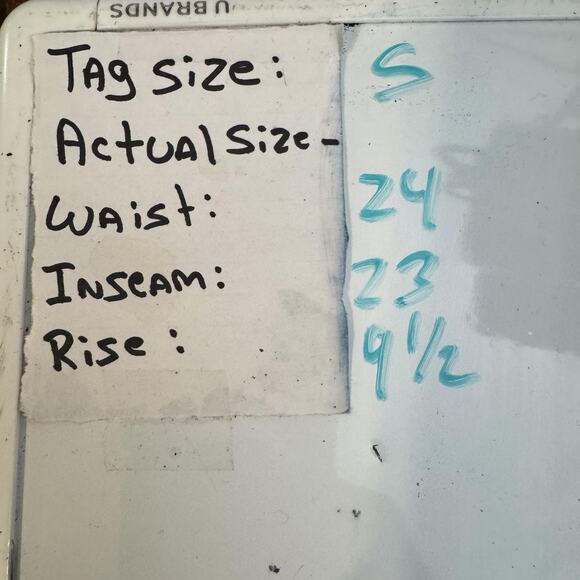 U BRANDS
TAg Size: S
ActuAl Size-
WAist: 24
InseAm: 23
Rise: 9 1/2